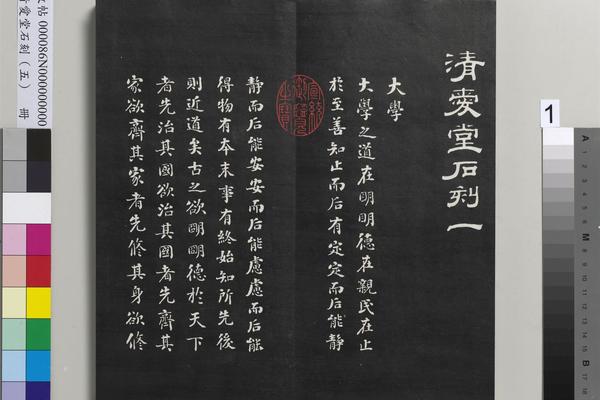 清愛堂石刻一
大學
大學之道在明明德在親民在止
於至善知止而后有定定而后能靜
靜而后能安安而后能慮慮而后能
得物有本末事有終始知所先後
則近道矣古之欲明明德於天下
者先治其國欲治其國者先齊其
家欲齊其家者先修其身欲修
帖 000086N000000000
愛堂石刻（五） 冊
1
A 1 2 3 4 5 6 M 8 9 10 11 12 13 14 15 B 17 18